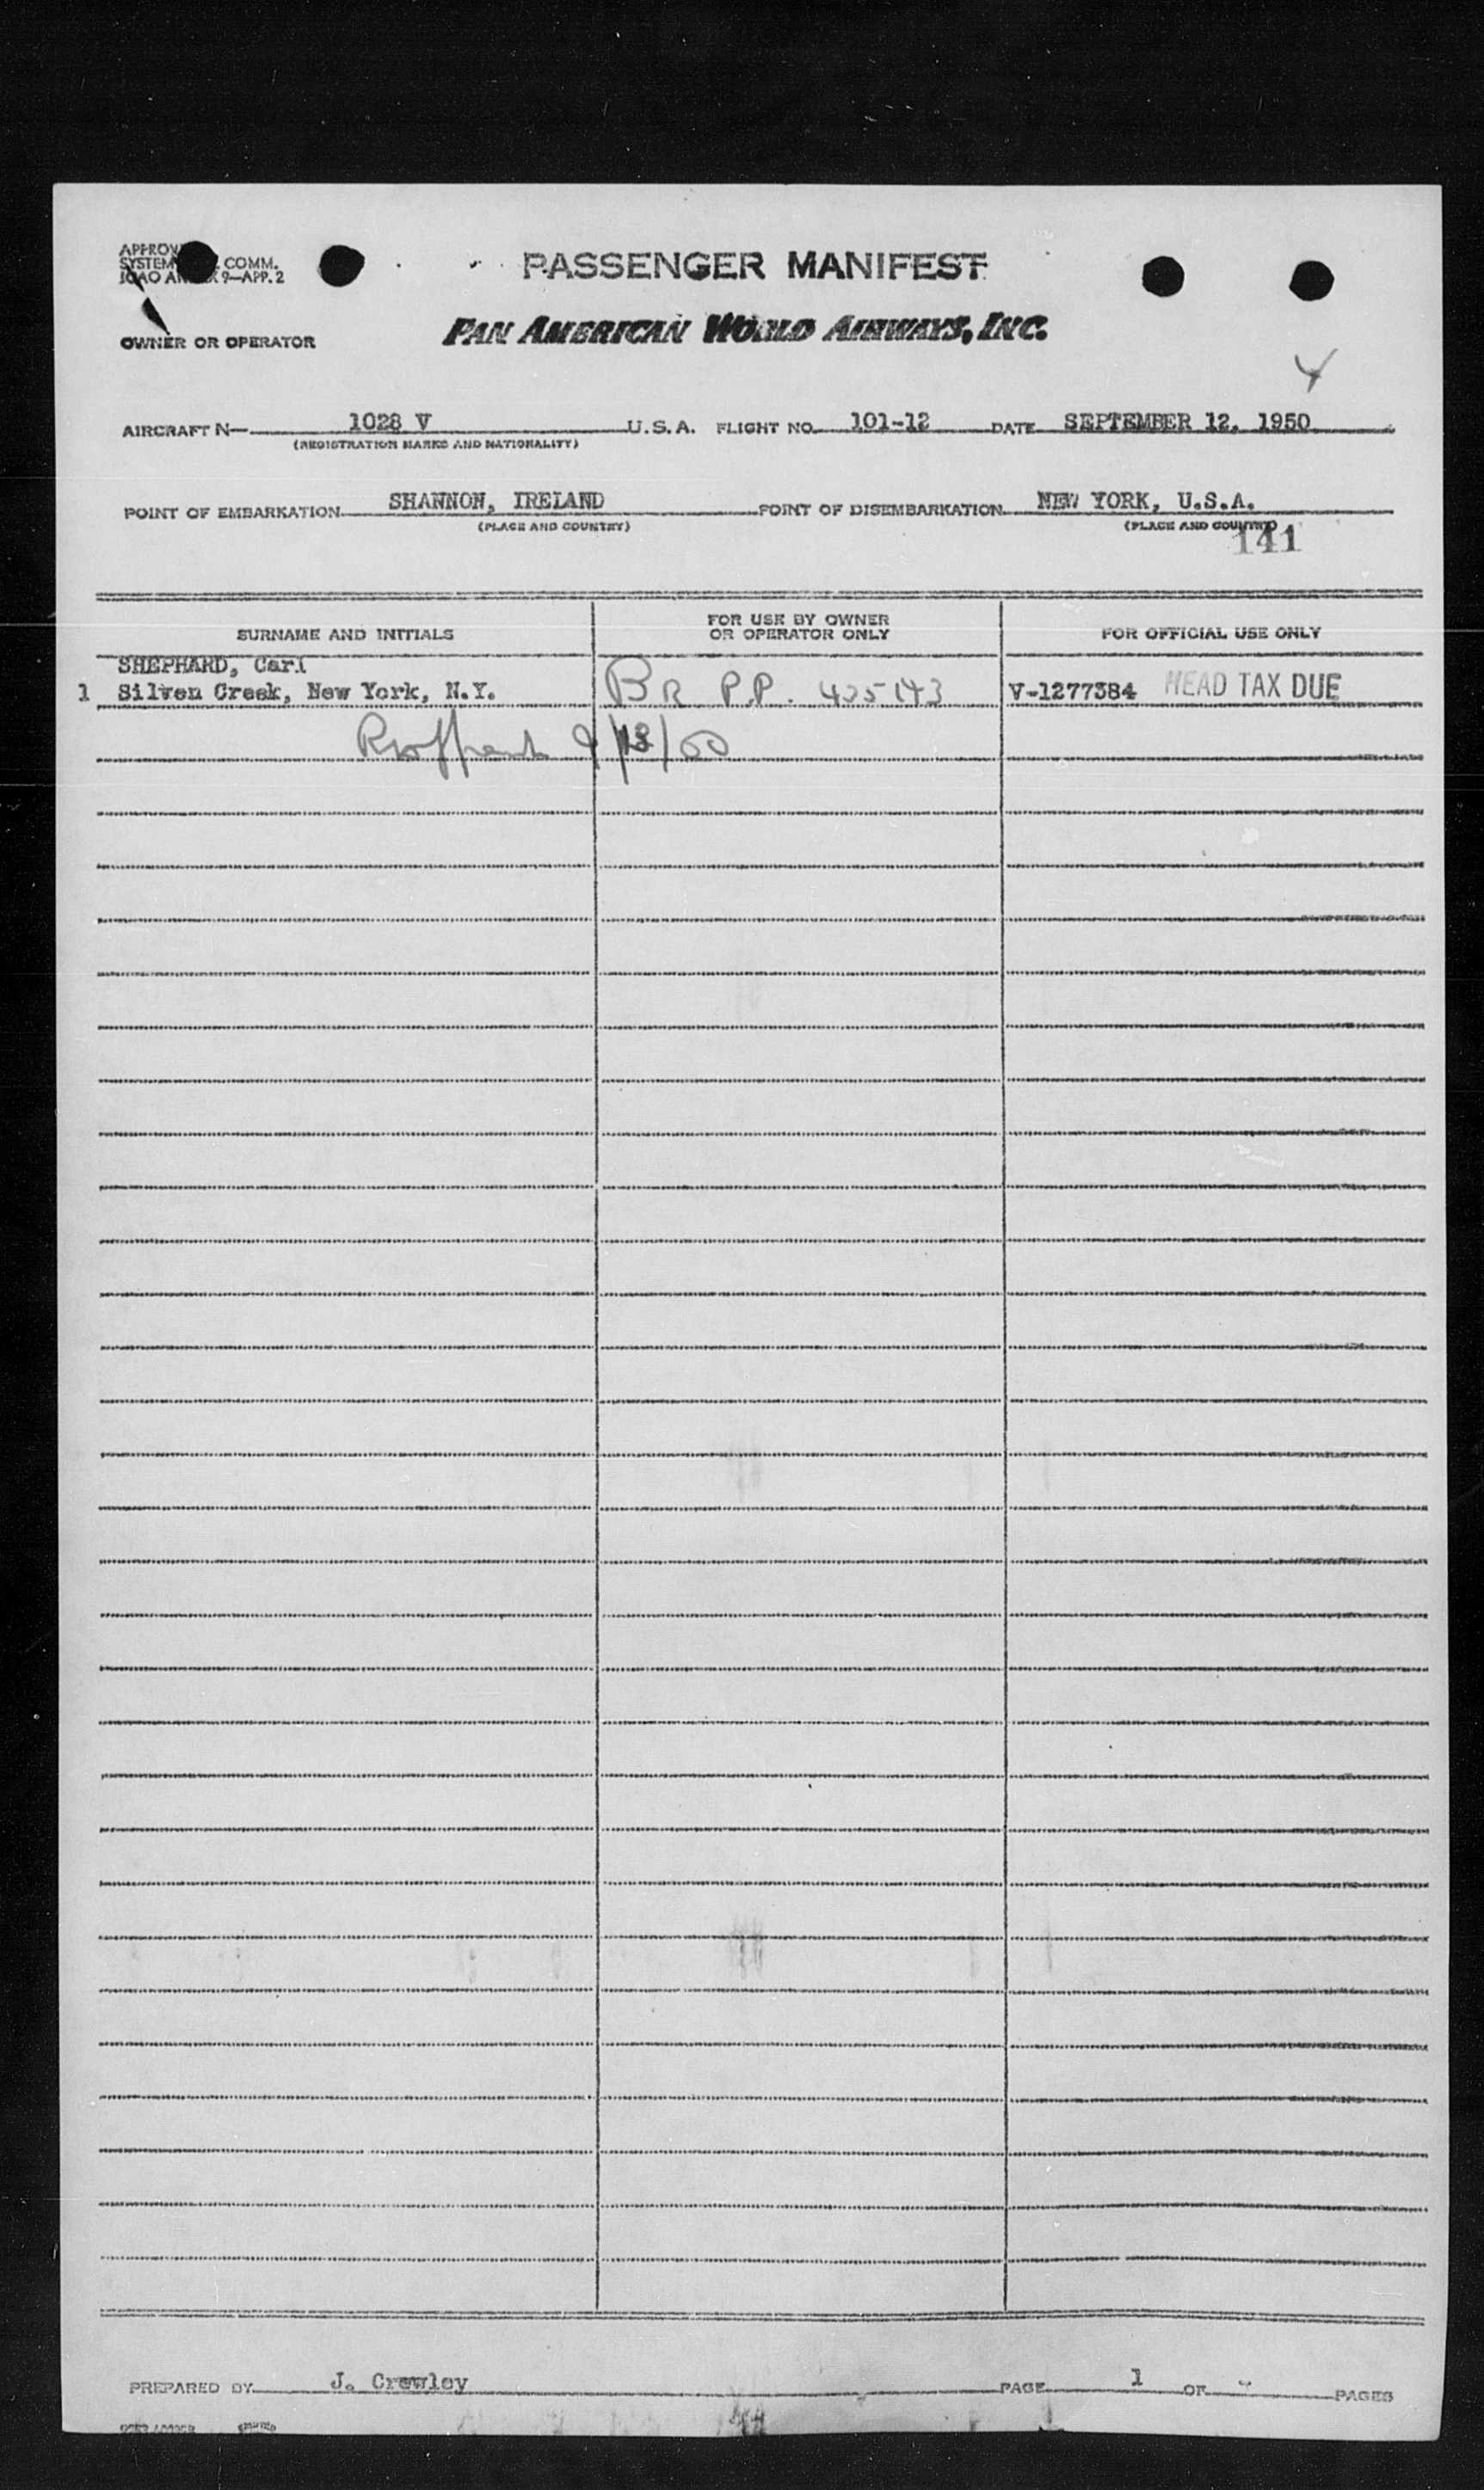 PASSENGER MANIFEST
COMM.
9—APP. 2
OWNER OR OPERATOR
PAN AMERICAN WORLD AIRWAYS, INC.
4
AIRCRAFT N— 1028 V U.S.A. FLIGHT NO. 101-12 DATE SEPTEMBER 12, 1950
(REGISTRATION MARKS AND NATIONALITY)
POINT OF EMBARKATION SHANNON, IRELAND POINT OF DISEMBARKATION NEW YORK, U.S.A.
(PLACE AND COUNTRY) (PLACE AND COUNTRY)
141
SURNAME AND INITIALS FOR USE BY OWNER OR OPERATOR ONLY FOR OFFICIAL USE ONLY
SHEPHARD, Carl
1 Silven Creek, New York, N.Y. BR P.P. 435143 V-1277384 HEAD TAX DUE
PREPARED BY J. Crowley PAGE 1 OF PAGES